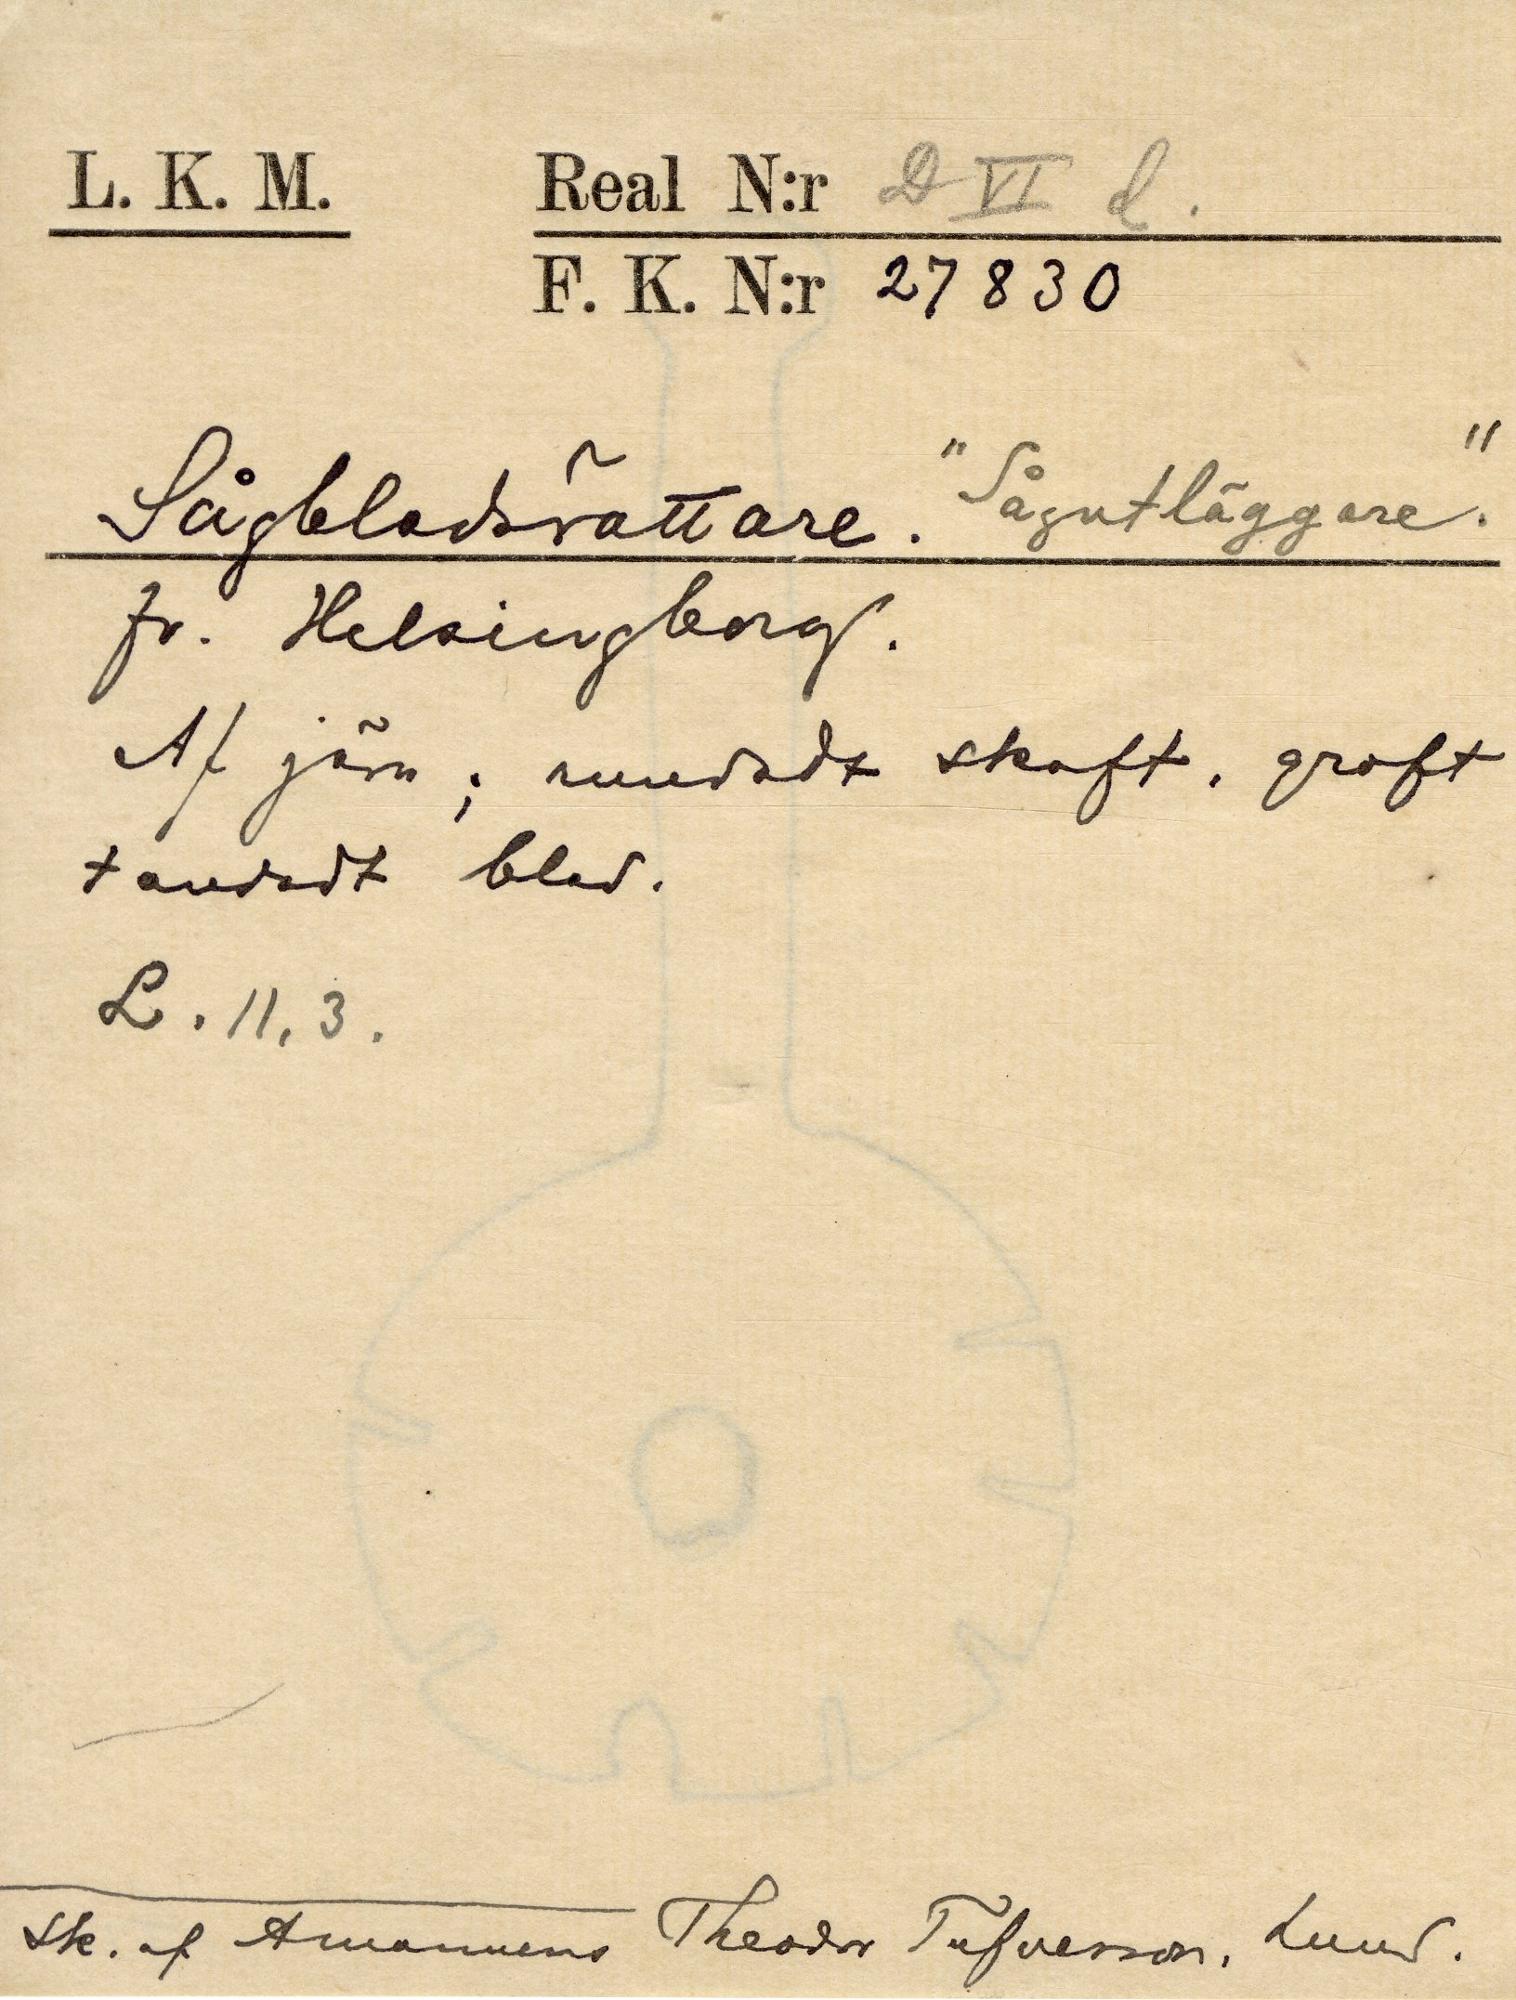 L. K. M. Real N:r D VI d.
F. K. N:r 27830
Sågbladsrättare. "Sågutläggare."
fr. Helsingborg.
Af järn; rundadt skaft, groft
tandadt blad.
L. 11,3.
Sk. af Amanuens Theodor Tufvesson, Lund.